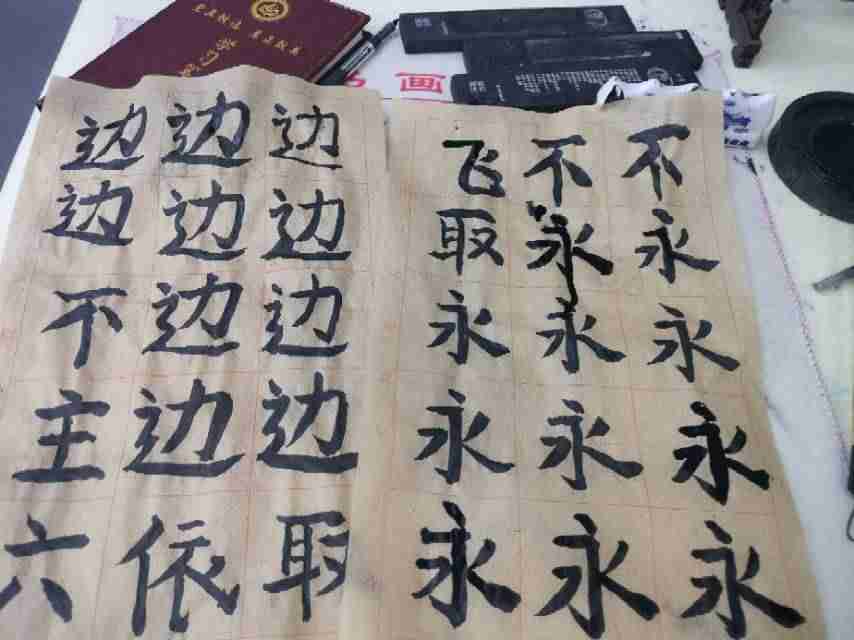 画
边边边
边边边
不边边
主边边
六依取
飞不不
取永永
永永永
永永永
永永永